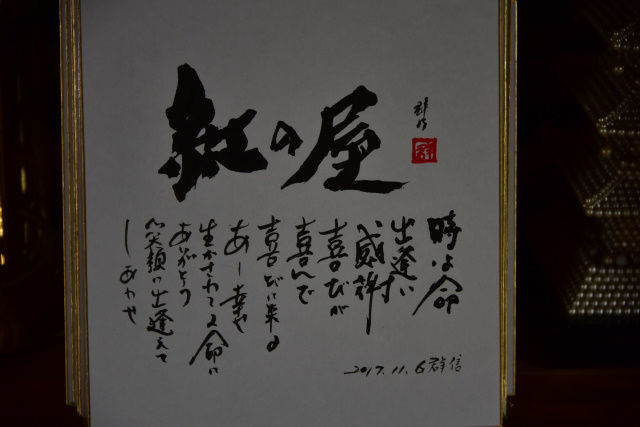 紅の屋
群信
時は命
出逢い
に感謝
喜びが
喜んで
喜びに来る
あー幸せ
生かされてる命に
ありがとう
笑顔に出逢えて
しあわせ
2017.11.6 群信